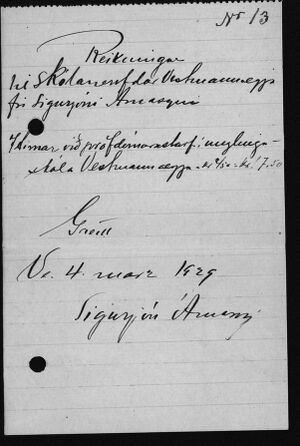 No 13
Reikningur
til Skólanefndar Vestmannaeyja
frá Sigurjóni Árnasyni
7 tímar við prófdómarastarf í unglinga-
skóla Vestmannaeyja - kr 2/50 = kr. 17.50
Greitt
Ve. 4. marz 1929
Sigurjón Árnason